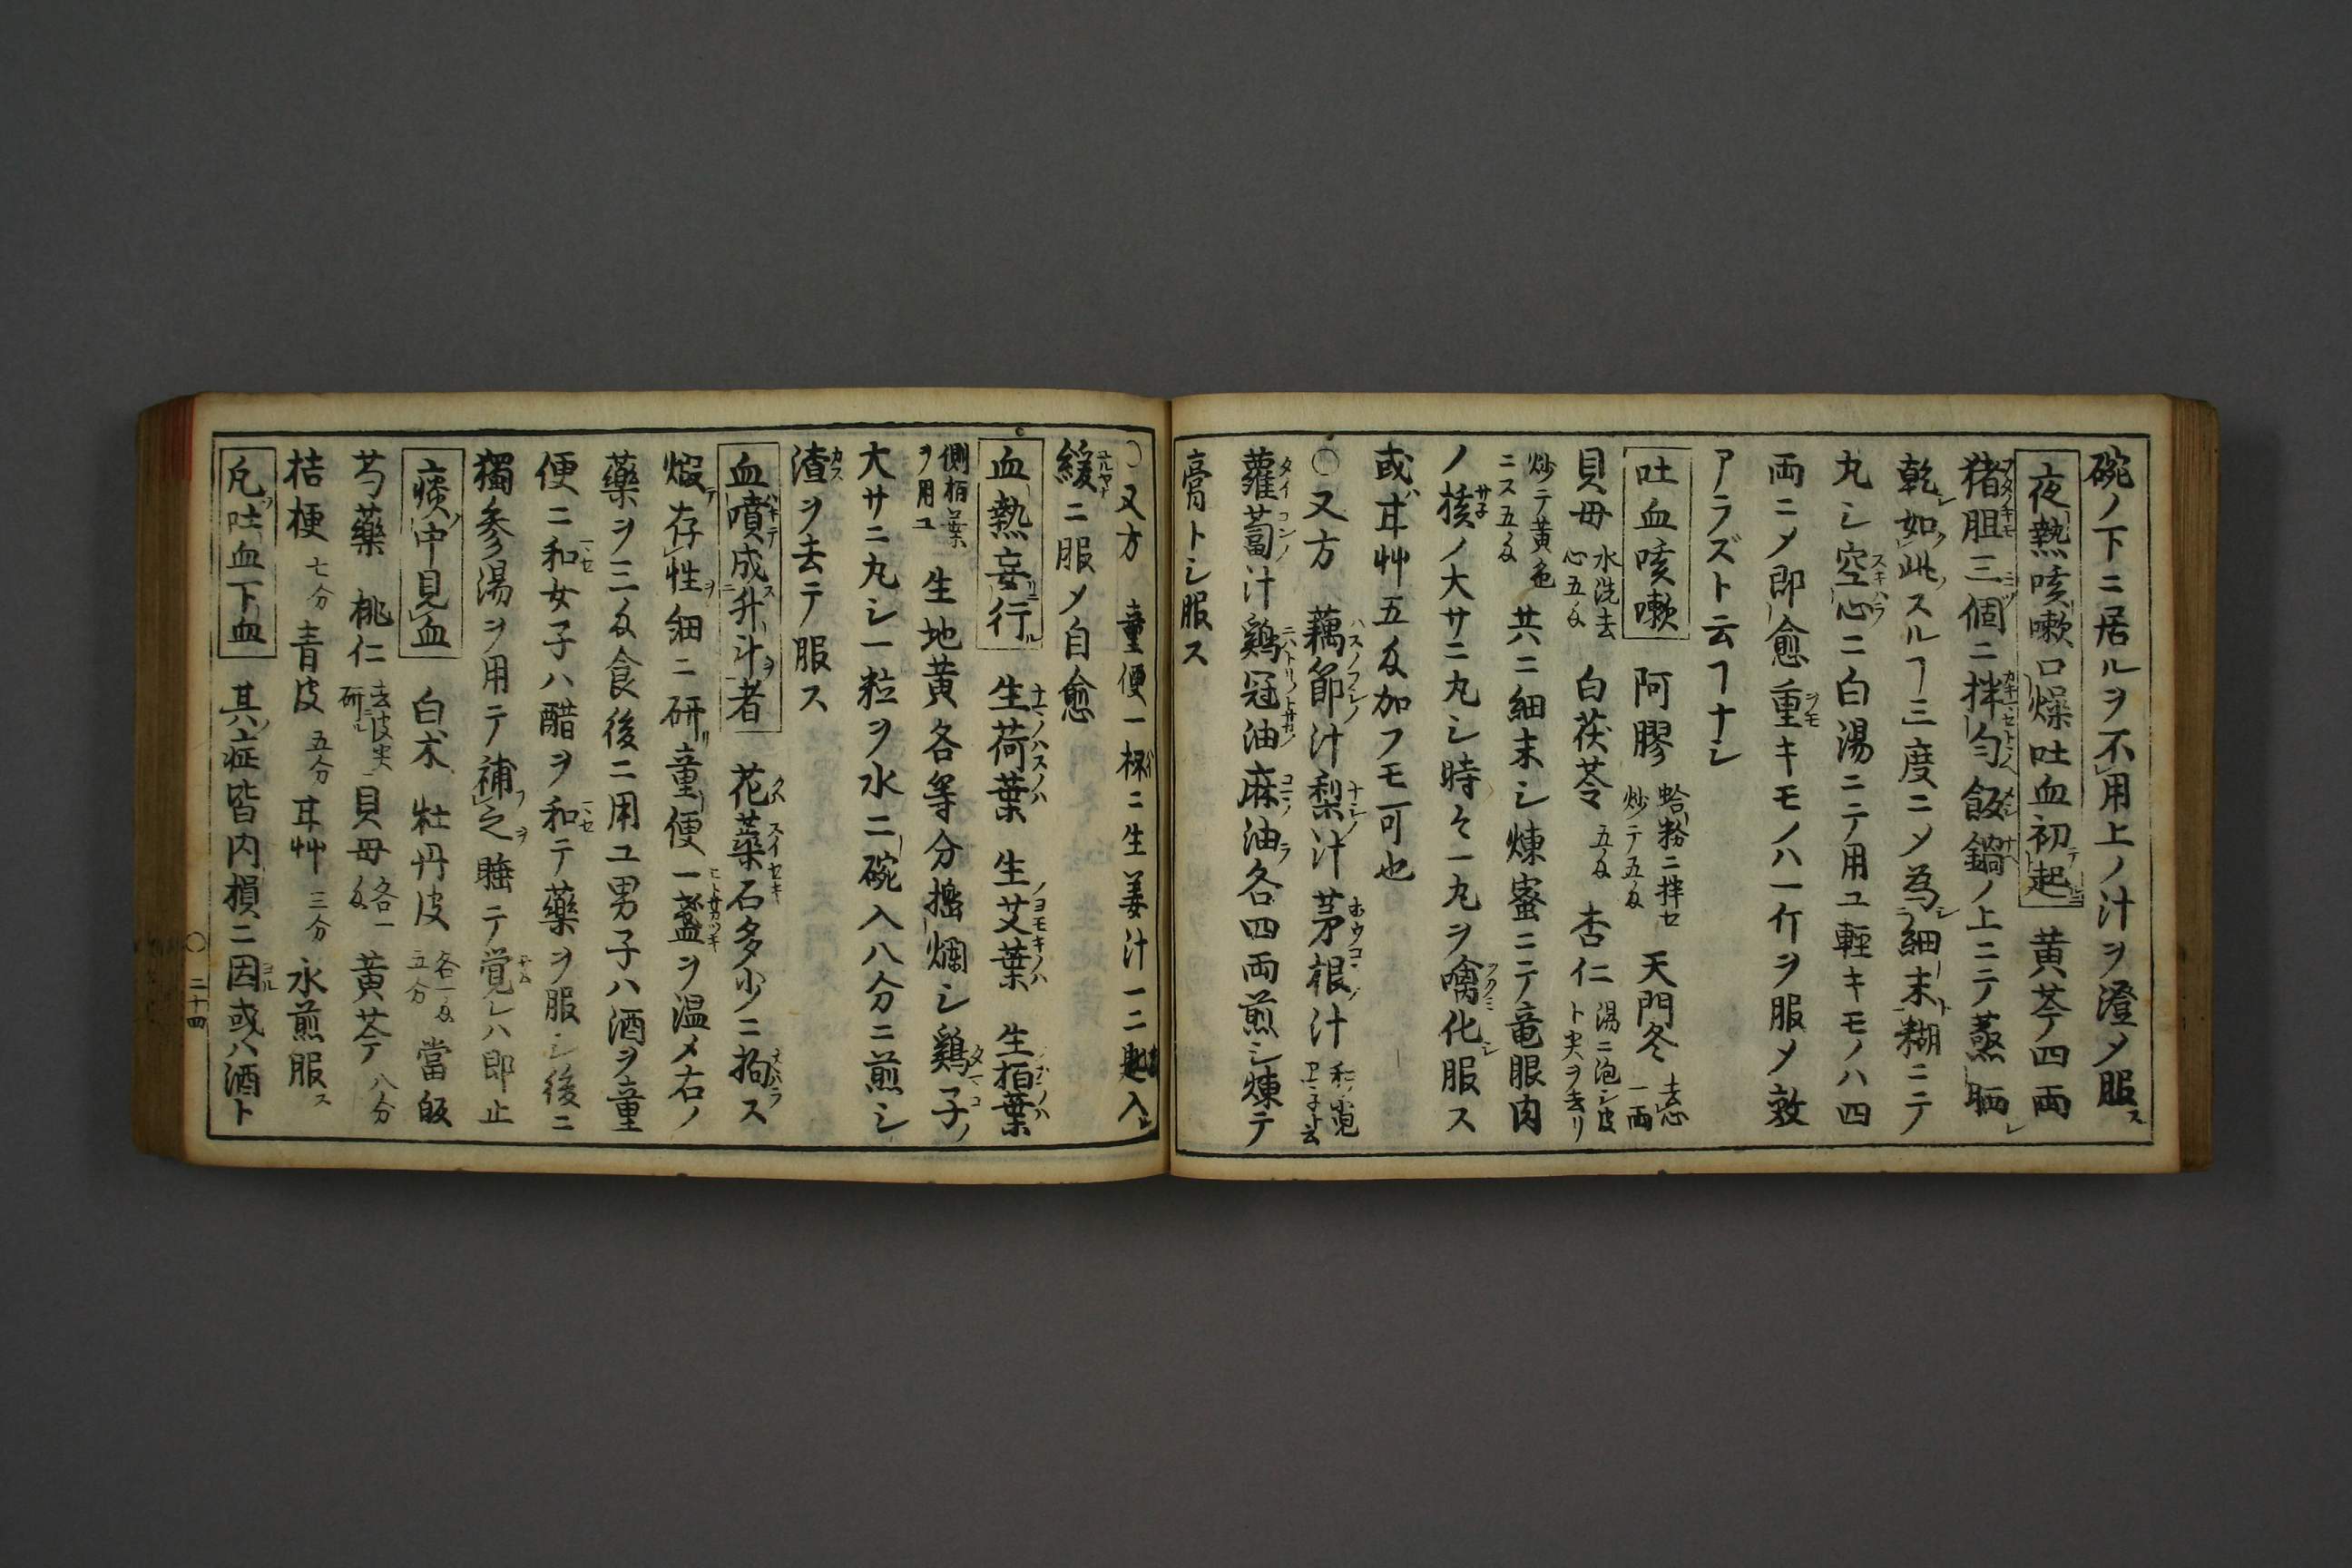 碗ノ下ニ居ルヲ不用上ノ汁ヲ澄メ服ス
夜熱咳嗽口燥吐血初起 黄芩四両
猪胆三個ニ拌匀飯鍋ノ上ニテ蒸晒シ
乾如此スルヿ三度ニメ為細末糊ニテ
丸シ空心ニ白湯ニテ用ユ軽キモノハ四
両ニメ即愈重キモノハ一斤ヲ服メ效
アラズト云ヿナシ
吐血咳嗽 阿膠 蛤粉ニ拌セ炒テ五匁 天門冬 去心一両
貝母 水洗去心五匁 白茯苓 五匁 杏仁 湯ニ泡シ皮ト尖ヲ去リ
炒テ黄色ニス五匁 共ニ細末シ煉蜜ニテ竜眼肉
ノ核ノ大サニ丸シ時々一丸ヲ噙化服ス
或ハ甘艸五匁加フモ可也
○又方 藕節汁梨汁茅根汁
蘿蔔汁鶏冠油麻油各四両煎シ煉テ
膏トシ服ス
○又方 童便一杯ニ生姜汁一二匙入
緩ニ服メ自愈
血熱妄行 生荷葉 生艾葉 生栢葉
側栢葉ヲ用ユ 生地黄各等分搗爛シ鶏子ノ
大サニ丸シ一粒ヲ水二碗入八分ニ煎シ
渣ヲ去テ服ス
血噴成升斗者 花蕊石多少ニ拘ス
煅存性細ニ研童便一盞ヲ温メ右ノ
藥ヲ三匁食後ニ用ユ男子ハ酒ヲ童
便ニ和女子ハ醋ヲ和テ藥ヲ服シ後ニ
獨參湯ヲ用テ補之睡テ覚レハ即止
痰中見血 白朮 牡丹皮 各一匁五分 當皈
芍藥 桃仁 去皮尖研 貝母 各一匁 黄芩 八分
桔梗 七分 青皮 五分 甘艸 三分 水煎服ス
凡吐血下血 其症皆内損ニ因或ハ酒ト
○ 二十四